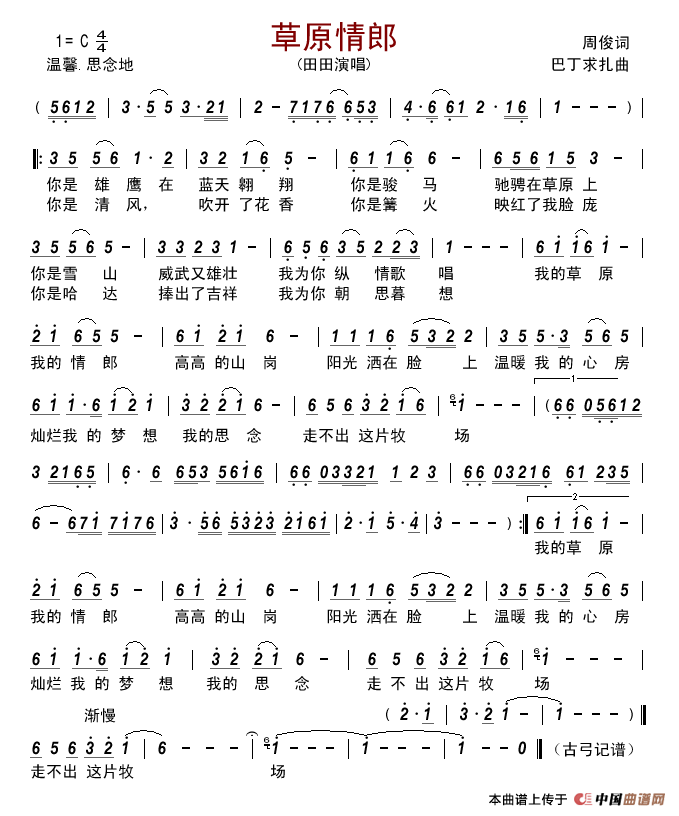 草原情郎
1= C 4/4
周俊词
温馨. 思念地
(田田演唱)
巴丁求扎曲
( 5612 | 3·5 53·21 | 2 - 7176 653 | 4·6 61 2·16 | 1 - - - ) |
‖: 35 56 1·2 | 32 216 5 - | 61 16 6 - | 6561 5 3 - |
你是 雄 鹰 在 蓝天 翱 翔 你是骏 马 驰骋在草原 上
你是 清 风， 吹开 了花 香 你是篝 火 映红了我脸 庞
35 56 5 - | 33 23 1 - | 65 6 35 223 | 1 - - - | 61 16 1 - |
你是雪 山 威武又雄壮 我为你 纵 情歌 唱 我的草 原
你是哈 达 捧出了吉祥 我为你 朝 思暮 想
21 65 5 - | 61 21 6 - | 111 16 5322 2 | 35 5·3 56 5 |
我的 情 郎 高高 的山 岗 阳光 洒在 脸 上 温暖 我 的 心 房
61 1·6 12 1 | 32 21 6 - | 65 6 32 16 | 6 1 - - - | (66 05612
1
灿烂我 的 梦 想 我的思 念 走不出 这片牧 场
3 2165 | 6·6 653 5616 | 66 03321 1 2 3 | 66 03216 61 235 |
6 - 671 7176 | 3·56 5323 2161 | 2·1 5·4 | 3 - - - ) :‖ 61 16 1 - |
2
我的草 原
21 65 5 - | 61 21 6 - | 111 16 5322 2 | 35 5·3 56 5 |
我的 情 郎 高高 的山 岗 阳光 洒在 脸 上 温暖 我 的 心 房
61 1·6 12 1 | 32 21 6 - | 65 6 32 16 | 6 1 - - - |
灿烂 我 的 梦 想 我的 思 念 走 不 出 这片 牧 场
渐慢
( 2·1 | 3·2 1 - | 1 - - - ) ‖
65 6 32 1 | 6 - - - | 6 1 - - - | 1 - - - | 1 - - 0 ‖ (古弓记谱)
走不出 这片牧 场
本曲谱上传于 中国曲谱网